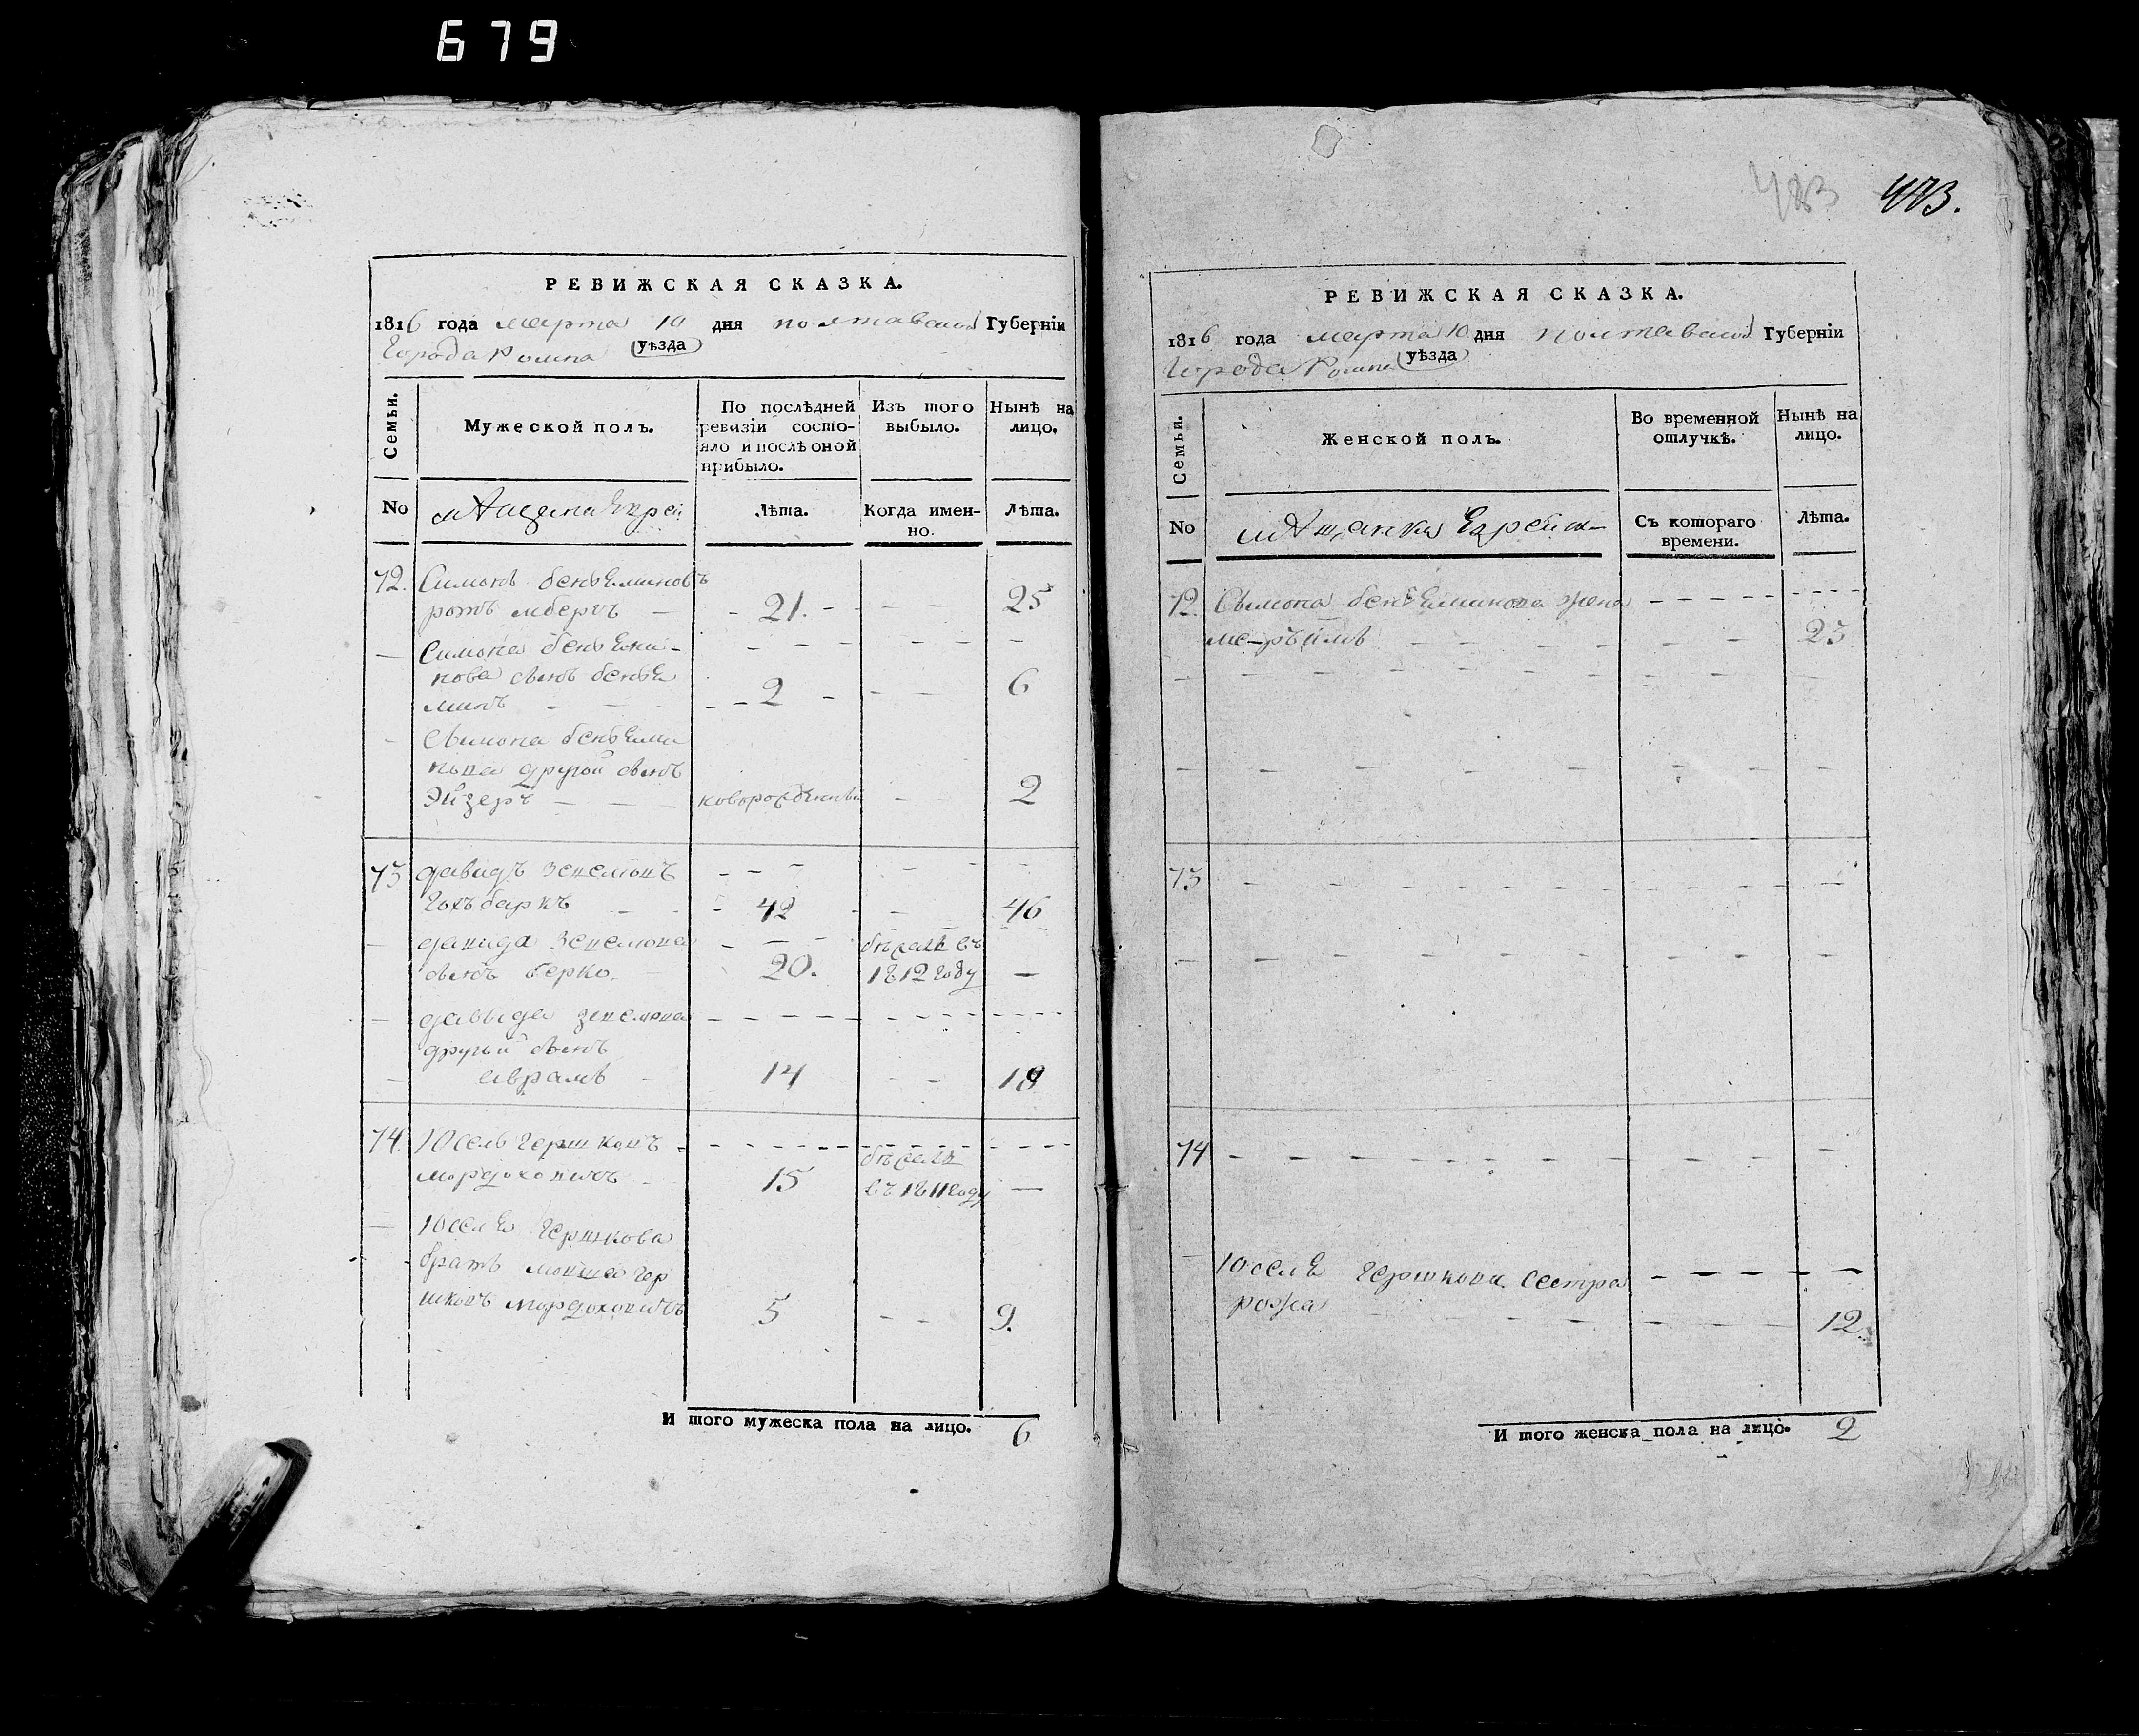 679
РЕВИЖСКАЯ СКАЗКА.
1816 года марта 10 дня полтавской Губерніи
Города Ромна уѣзда
Семьи.
Мужеской полъ.
По послѣдней ревизіи состояло и послѣ оной прибыло.
Изъ того выбыло.
Нынѣ на лицо.
No
мѣщане Евреи
Лѣта.
Когда именно.
Лѣта.
72. Симонъ беньеминовъ
21. 25
Симона беньеми-
нова сынъ бенье
минъ 2 6
Симона беньеми
нова другой сынъ
Эйзеръ новорожденный 2
73 давидъ
42 46
давида бѣжалъ въ
сынъ берко 20. 1812 году
давыда
другой сынъ
аврамъ 14 18
74. Юсель гершковъ бѣжалъ
мордоховичъ 15 въ 1811 году
Юселя гершкова
братъ мовша гер
шковъ мордоховичъ 5 9.
И того мужеска пола на лицо. 6
483 473.
РЕВИЖСКАЯ СКАЗКА.
1816 года марта 10 дня полтавской Губерніи
Города Ромна уѣзда
Семьи.
Женской полъ.
Во временной отлучкѣ.
Нынѣ на лицо.
No
мѣщанки Еврейки
Съ котораго времени.
Лѣта.
72. Симона беньеминова жена
23
73
74
Юселя гершкова сестра
рожа 12.
И того женска пола на лицо. 2